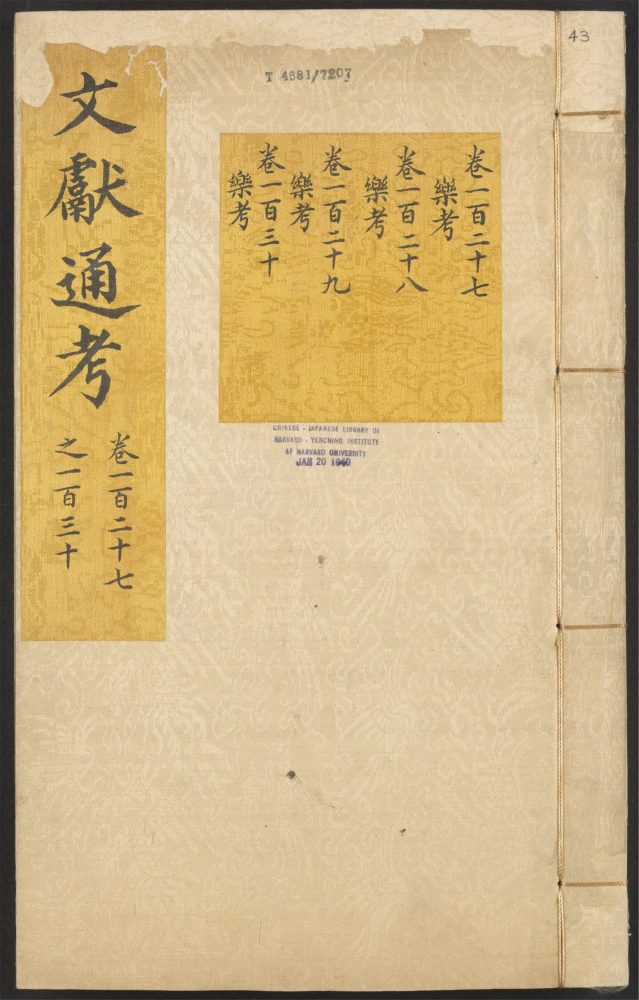 43
T 4681/7207
卷一百二十七
樂考
卷一百二十八
樂考
卷一百二十九
樂考
卷一百三十
樂考
文獻通考
卷一百二十七
之一百三十
CHINESE - JAPANESE LIBRARY OF
HARVARD - YENCHING INSTITUTE
AT HARVARD UNIVERSITY
JAN 20 1940